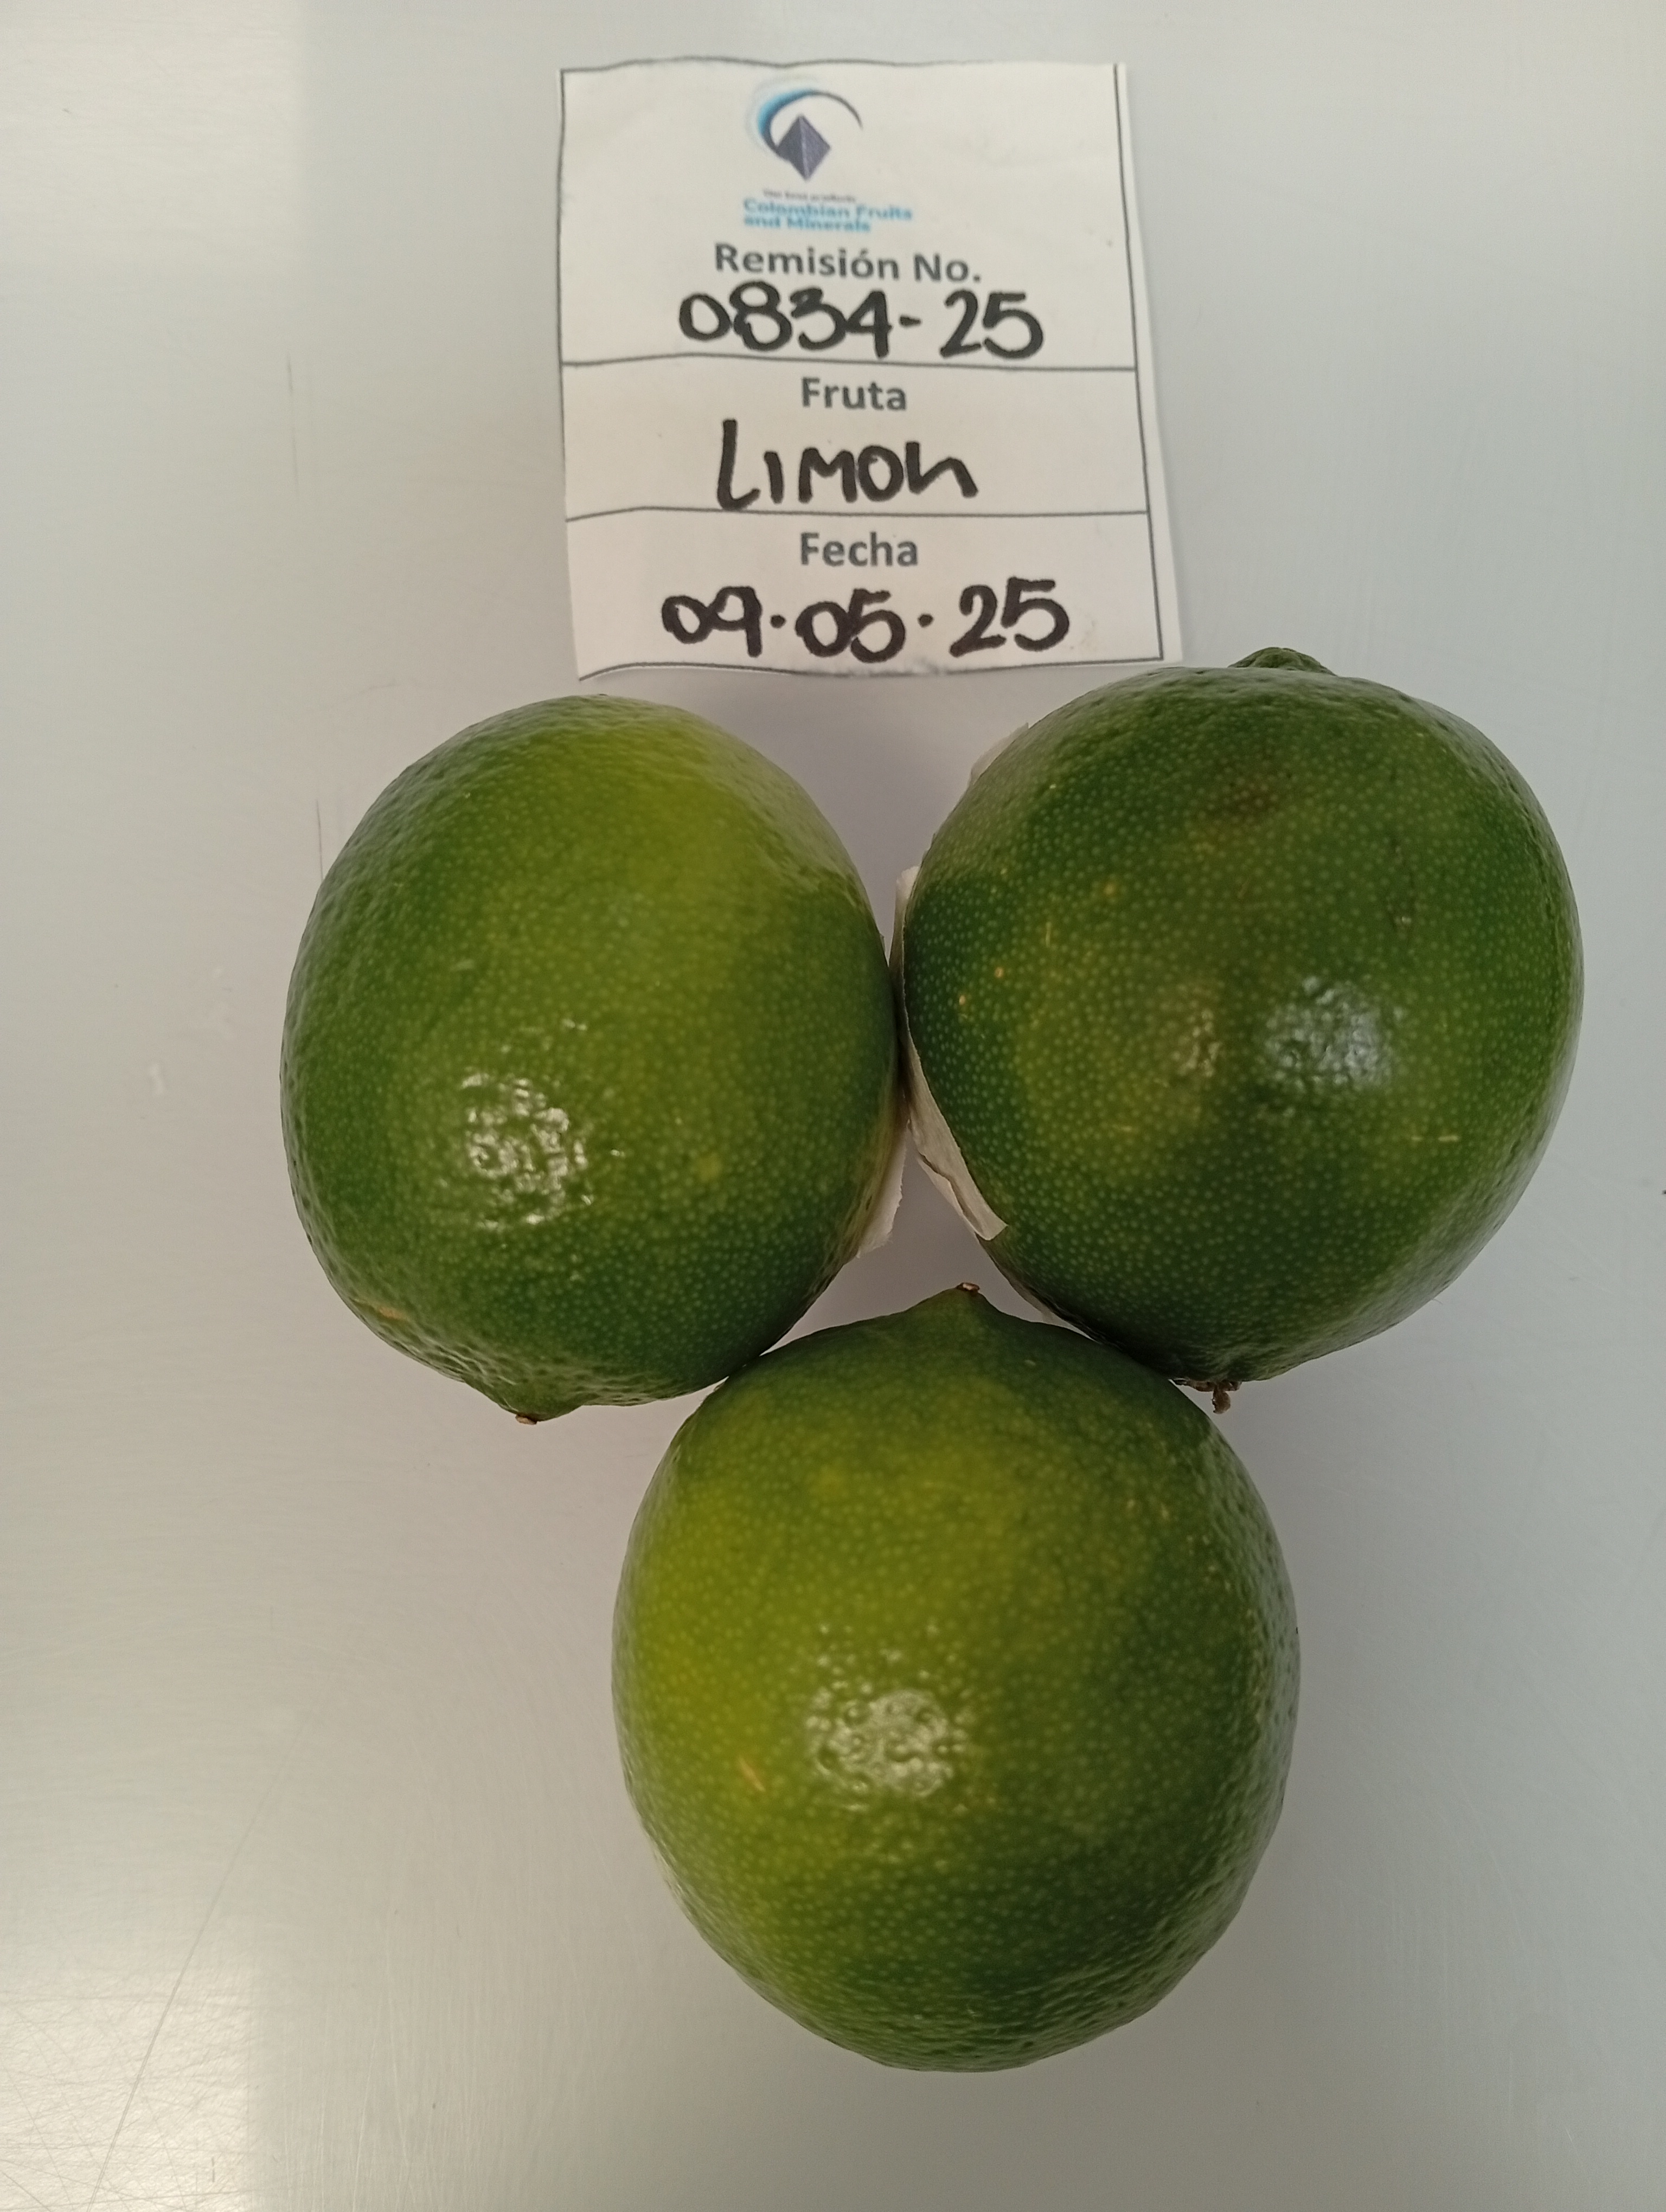 The best products
Colombian Fruits
and Minerals
Remisión No.
0834-25
Fruta
LIMON
Fecha
09.05.25